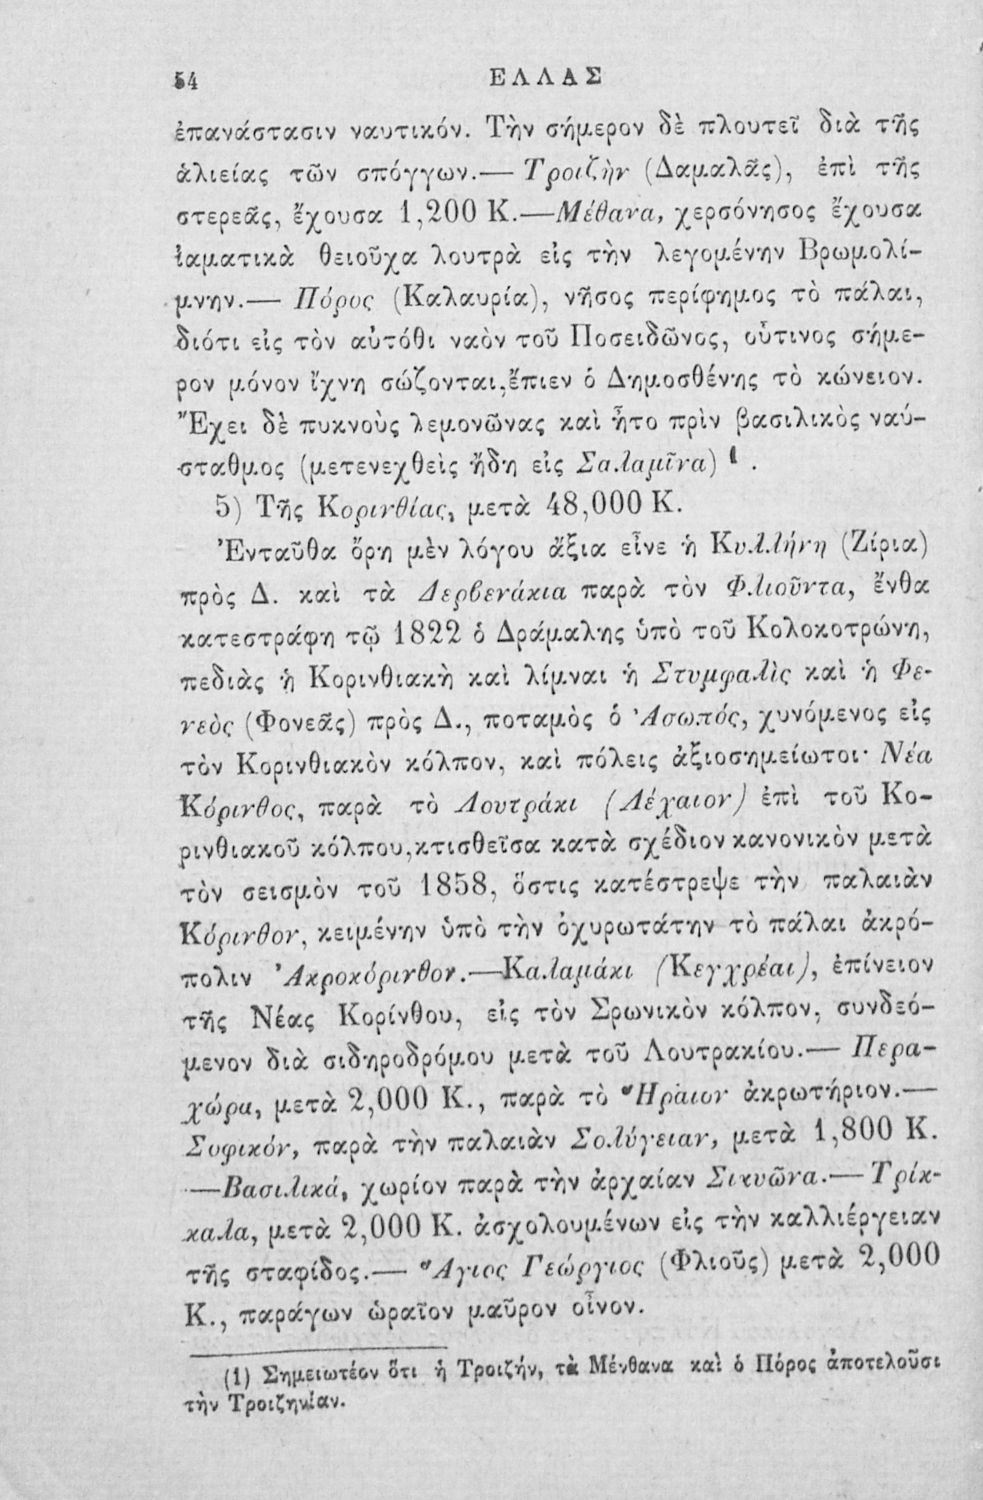 54 ΕΛΛΑΣ
ἐπανάστασιν ναυτικόν. Τὴν σήμερον δὲ πλουτεῖ διὰ τῆς
ἁλιείας τῶν σπόγγων.— Τροιζὴν (Δαμαλᾶς), ἐπὶ τῆς
στερεᾶς, ἔχουσα 1,200 Κ.—Μέθανα, χερσόνησος ἔχουσα
ἰαματικὰ θειοῦχα λουτρὰ εἰς τὴν λεγομένην Βρωμολί-
μνην.— Πόρος (Καλαυρία), νῆσος περίφημος τὸ πάλαι,
διότι εἰς τὸν αὐτόθι ναὸν τοῦ Ποσειδῶνος, οὗτινος σήμε-
ρον μόνον ἴχνη σώζονται, ἔπιεν ὁ Δημοσθένης τὸ κώνειον.
Ἔχει δὲ πυκνοὺς λεμονῶνας καὶ ἦτο πρὶν βασιλικὸς ναύ-
σταθμος (μετενεχθεὶς ἤδη εἰς Σαλαμῖνα) 1 .
5) Τῆς Κορινθίας, μετὰ 48,000 Κ.
Ἐνταῦθα ὄρη μὲν λόγου ἄξια εἶνε ἡ Κυλλήνη (Ζίρια)
πρὸς Δ. καὶ τὰ Δερβενάκια παρὰ τὸν Φλιοῦντα, ἔνθα
κατεστράφη τῷ 1822 ὁ Δράμαλης ὑπὸ τοῦ Κολοκοτρώνη,
πεδιὰς ἡ Κορινθιακὴ καὶ λίμναι ἡ Στυμφαλὶς καὶ ἡ Φε-
νεὸς (Φονεᾶς) πρὸς Δ., ποταμὸς ὁ Ἀσωπός, χυνόμενος εἰς
τὸν Κορινθιακὸν κόλπον, καὶ πόλεις ἀξιοσημείωτοι· Νέα
Κόρινθος, παρὰ τὸ Λουτράκι (Λέχαιον) ἐπὶ τοῦ Κο-
ρινθιακοῦ κόλπου, κτισθεῖσα κατὰ σχέδιον κανονικὸν μετὰ
τὸν σεισμὸν τοῦ 1858, ὅστις κατέστρεψε τὴν παλαιὰν
Κόρινθον, κειμένην ὑπὸ τὴν ὀχυρωτάτην τὸ πάλαι ἀκρό-
πολιν Ἀκροκόρινθον.—Καλαμάκι (Κεγχρέαι), ἐπίνειον
τῆς Νέας Κορίνθου, εἰς τὸν Σρωνικὸν κόλπον, συνδεό-
μενον διὰ σιδηροδρόμου μετὰ τοῦ Λουτρακίου.— Περα-
χώρα, μετὰ 2,000 Κ., παρὰ τὸ Ἥραιον ἀκρωτήριον.—
Σοφικόν, παρὰ τὴν παλαιὰν Σολύγειαν, μετὰ 1,800 Κ.
—Βασιλικά, χωρίον παρὰ τὴν ἀρχαίαν Σικυῶνα.— Τρίκ-
καλα, μετὰ 2,000 Κ. ἀσχολουμένων εἰς τὴν καλλιέργειαν
τῆς σταφίδος.— Ἅγιος Γεώργιος (Φλιοῦς) μετὰ 2,000
Κ., παράγων ὡραῖον μαῦρον οἶνον.
(1) Σημειωτέον ὅτι ἡ Τροιζήν, τὰ Μένθανα καὶ ὁ Πόρος ἀποτελοῦσι
τὴν Τροιζηνίαν.